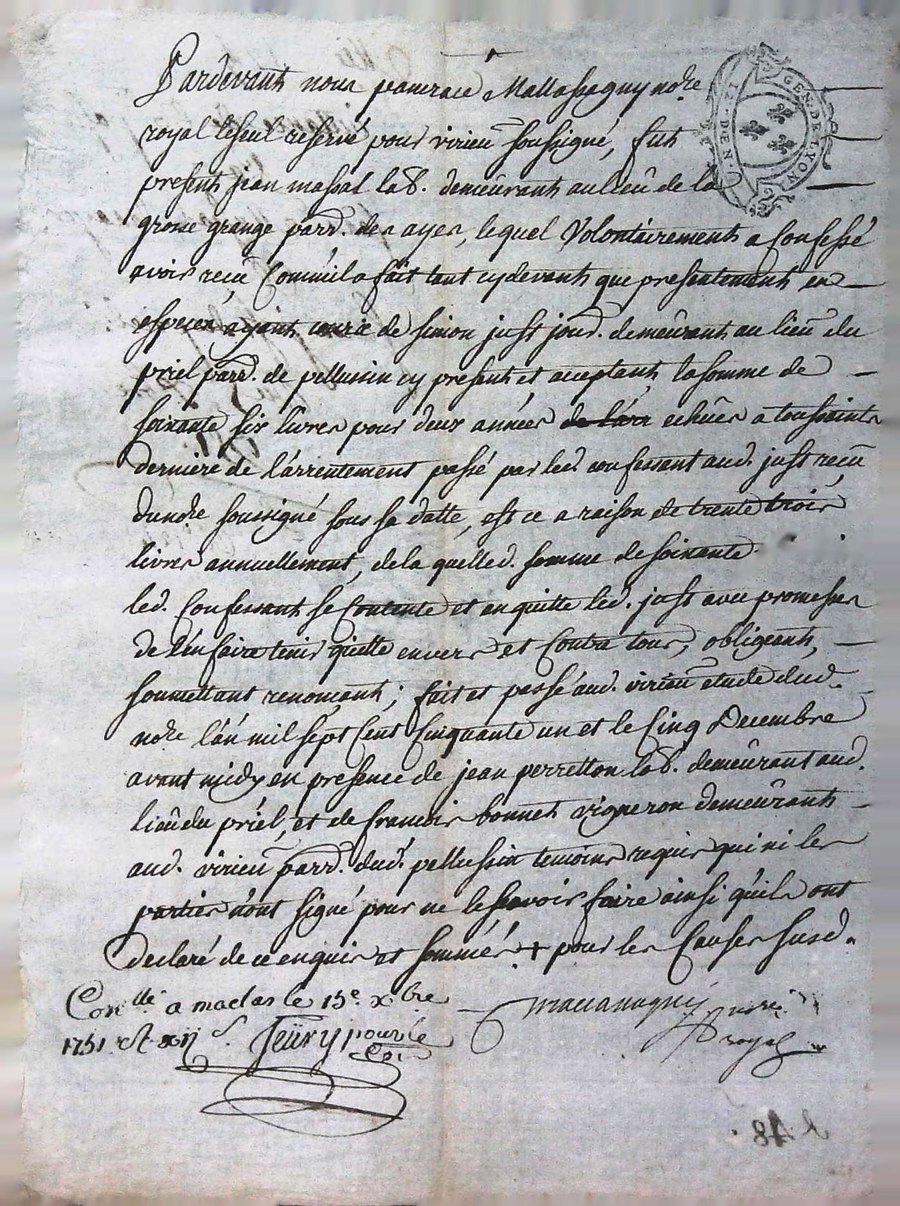 Pardevant nous Mallassagny no.re
royal le seul reservé pour virieu soussigné, fut
present jean massat lab. demeurant au lieu de la
grosse grange parr. des ayes, lequel Volontairement a Confessé
avoir reçu Comm'il a fait tant cy devant que presentement en
especes ayant cource de simon just jourd. demeurant au lieu du
priel parr. de pellussin cy present et acceptant, la somme de
soixante six livres pour deux années echües a toussaints
derniere de l'arrentement passé par led. confessant aud. just reçu
du no.re soussigné sous sa datte, est ce a raison de trente trois
livres annuellement, de la quelle d. somme de soixante
led. Confessant se Contente et en quitte led. just avec promesses
de l'en faire tenir quitte envers et Contre tous, obligeant,
soumettant renonçant; fait et passé aud. virieu etude dud.
no.re l'an mil sept Cent Cinquante un et le Cinq Decembre
avant midy en presence de jean perretton lab. demeurant aud.
lieu du priel, et de francois bonnet vigneron demeurant
aud. virieu parr. dud. pellussin temoins requis qui ni les
parties n'ont signé pour ne le scavoir faire ainsi qu'ils ont
declaré de ce enquis et sommés + pour les Causes susd.
Con.llé a maclas le 15e xbre
1751 rt xij s. pour le
royal
GEN. DE LYON
12. DEN
48